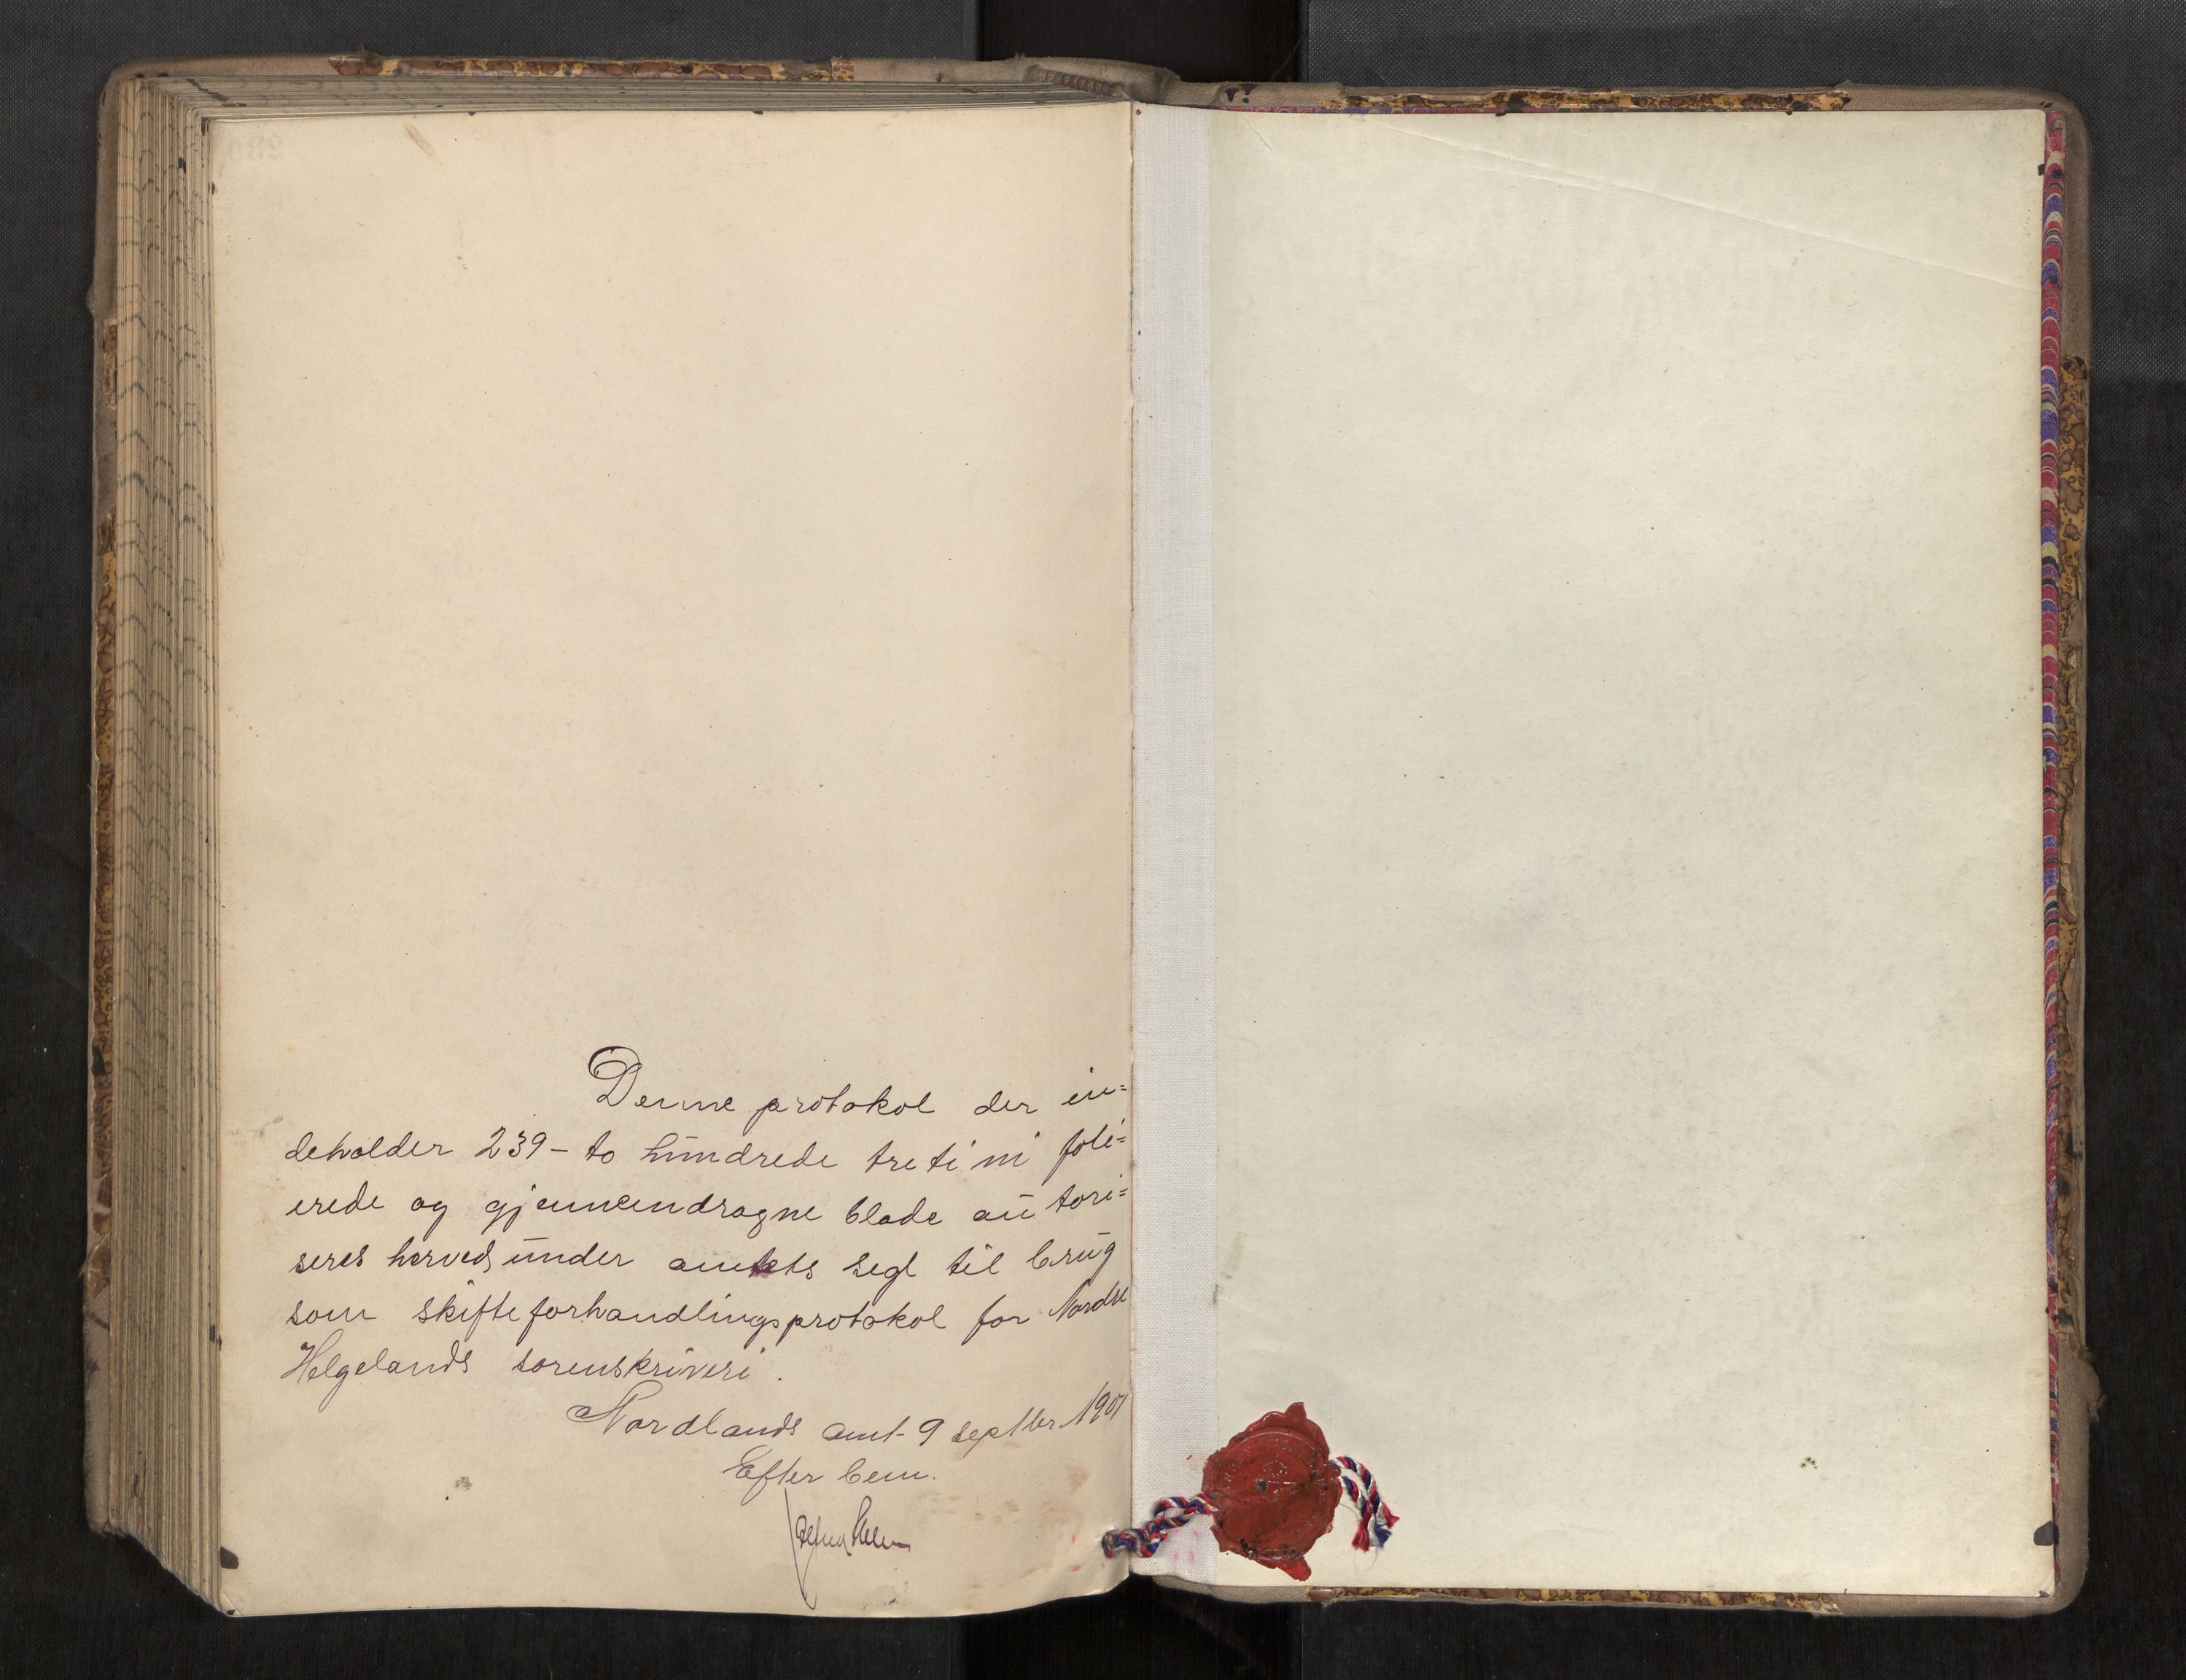 Denne protokol der in=
deholder 239 - to hundrede treti ni foli=
erede og gjennemdragne blade autori=
seres herved under amtets segl til brug
som skifteforhandlingsprotokol for Nordre
Helgelands sorenskriveri.
Nordlands amt 9 septbr. 1901
Efter bem.